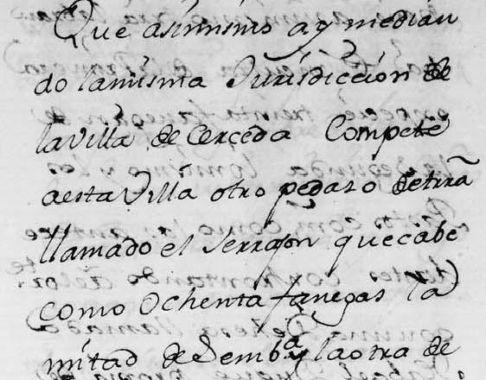 Que asimismo ay median
do la misma Jurisdiccion de
la Villa de Cerçeda Compete
a esta Villa otro pedazo de tırrâ
llamado el Serrajon que cabe
como Ochenta fanegas la
mitad de Semba y la otra de